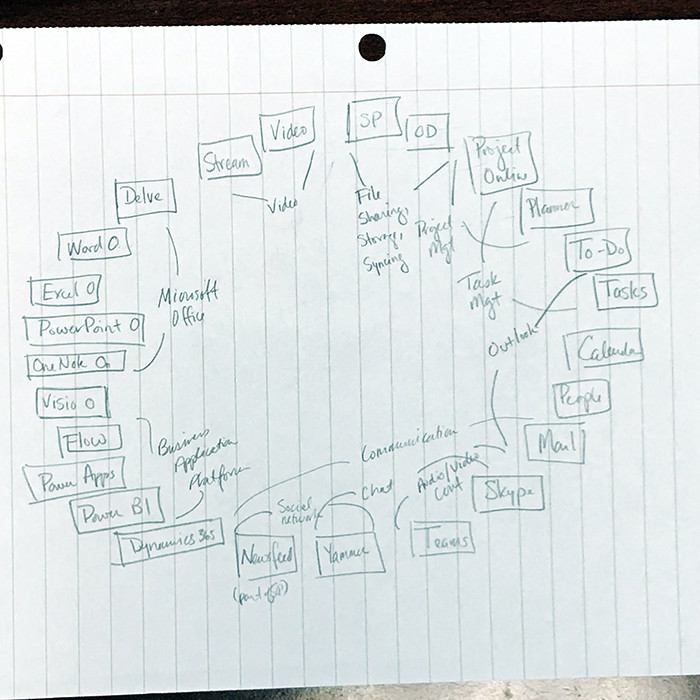 SP
Video
OD
Stream
Project
Online
Delve
Video
File
Sharing,
Storage,
Syncing
Project
Mgt
Planner
Word O
To-Do
Excel O
Microsoft
Office
Task
Mgt
Tasks
PowerPoint O
Outlook
Calendar
OneNote On
People
Visio O
Flow
Business
Application
Platform
Communication
Mail
Power Apps
Chat
Audio/Video
Conf
Skype
Power BI
Social
network
Dynamics 365
Newsfeed
Yammer
Teams
(part of SP)